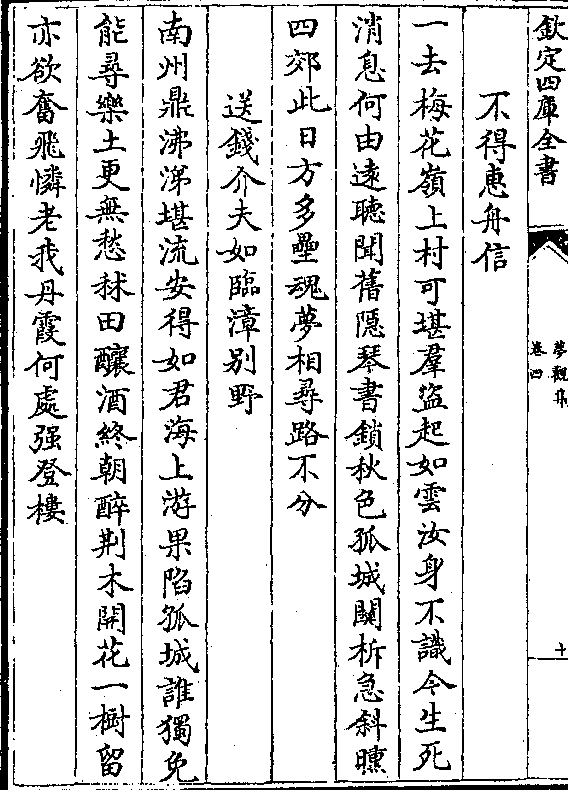 欽定四庫全書
夢觀集
卷四
十
不得惠舟信
一去梅花嶺上村可堪羣盜起如雲汝身不識今生死
消息何由遠聽聞舊隱琴書鎖秋色孤城闃柝急斜曛
四郊此日方多壘魂夢相尋路不分
送錢介夫如臨漳別野
南州鼎沸涕堪流安得如君海上游果陷孤城誰獨免
能尋樂土更無愁秫田釀酒終朝醉荆木開花一樹留
亦欲奮飛憐老我丹霞何處强登樓